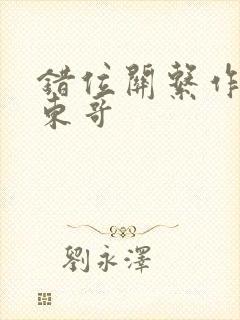 錯位關繫作
東哥
劉永澤